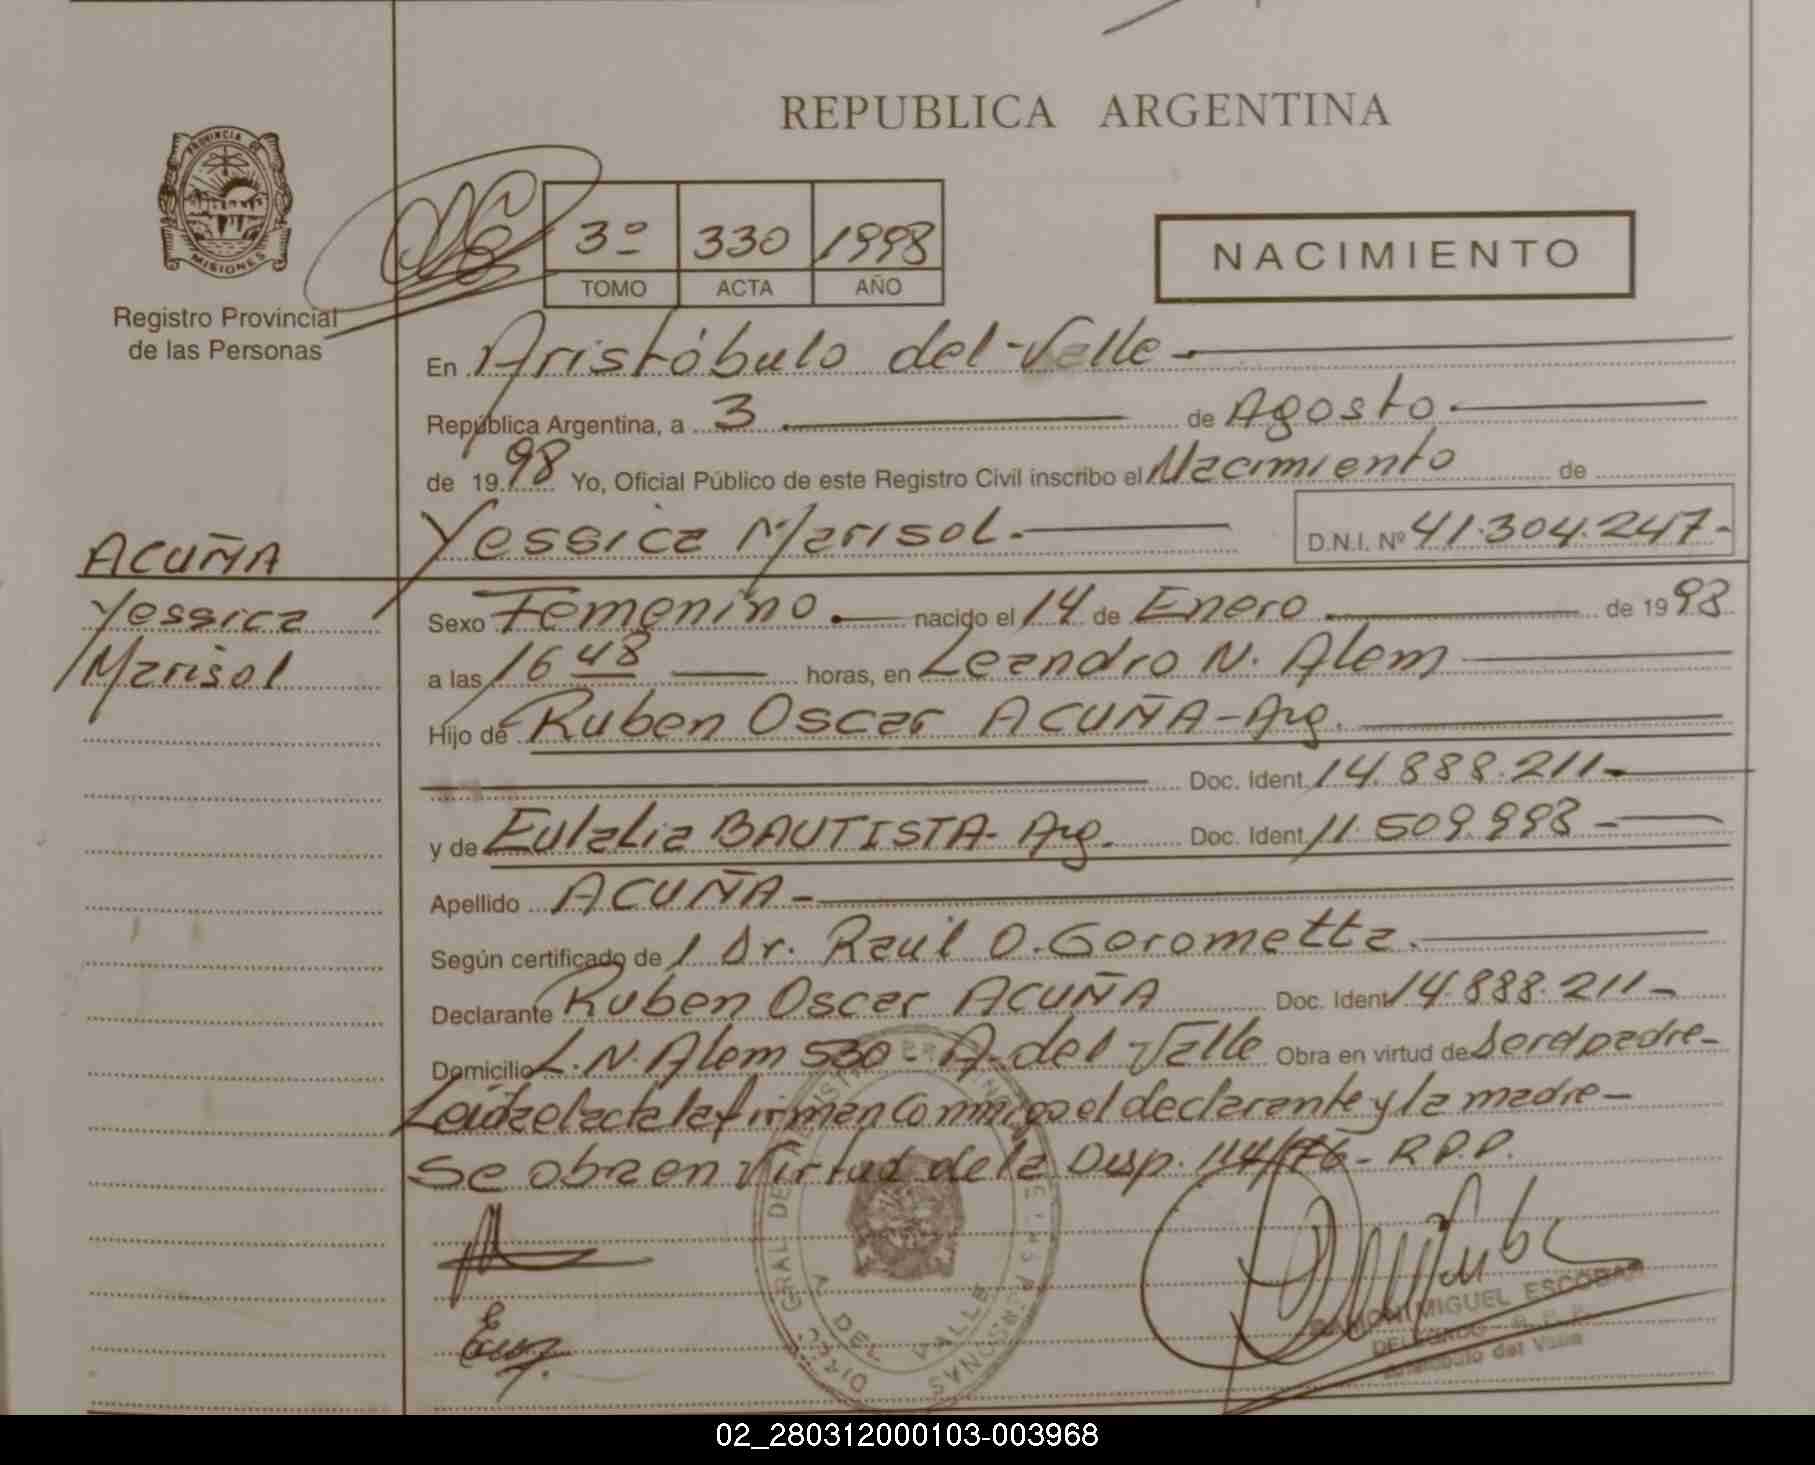 REPUBLICA ARGENTINA
PROVINCIA DE
MISIONES
Registro Provincial
de las Personas
3º 330 1998
TOMO ACTA AÑO
NACIMIENTO
En Aristóbulo del Valle
República Argentina, a 3 de Agosto
de 1998 Yo, Oficial Público de este Registro Civil inscribo el Nacimiento de
Yessica Marisol.- D.N.I. Nº 41.304.247-
ACUÑA
Yessica
Marisol
Sexo Femenino nacido el 14 de Enero de 1998
a las 16 48 horas, en Leandro N. Alem
Hijo de Ruben Oscar ACUÑA-Arg.
Doc. Ident. 14.888.211-
y de Eulalia BAUTISTA- Arg. Doc. Ident. 11.509.998-
Apellido ACUÑA-
Según certificado de / Dr. Raúl O. Gorometta.
Declarante Ruben Oscar ACUÑA Doc. Ident 14.888.211-
Domicilio L.N. Alem 530- A. del Valle Obra en virtud de Ser el padre-
Leída el acta la firman conmigo el declarante y la madre-
Se obra en virtud de la Disp. 114/76- R.P.P.
A. DEL VALLE
RAMON MIGUEL ESCOBAR
DELEGADO - R. P. P.
Aristóbulo del Valle
02_280312000103-003968